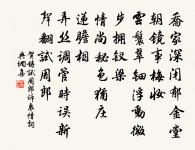 喬家深閉郁金堂
朝鏡事梅妝
雲鬟翠鈿浮動微
步擁釵梁
情尚秘色猶莊
遞瞻相
弄絲調管時誤新
聲翻試周郎
賀鑄試周郎訴衷情詞